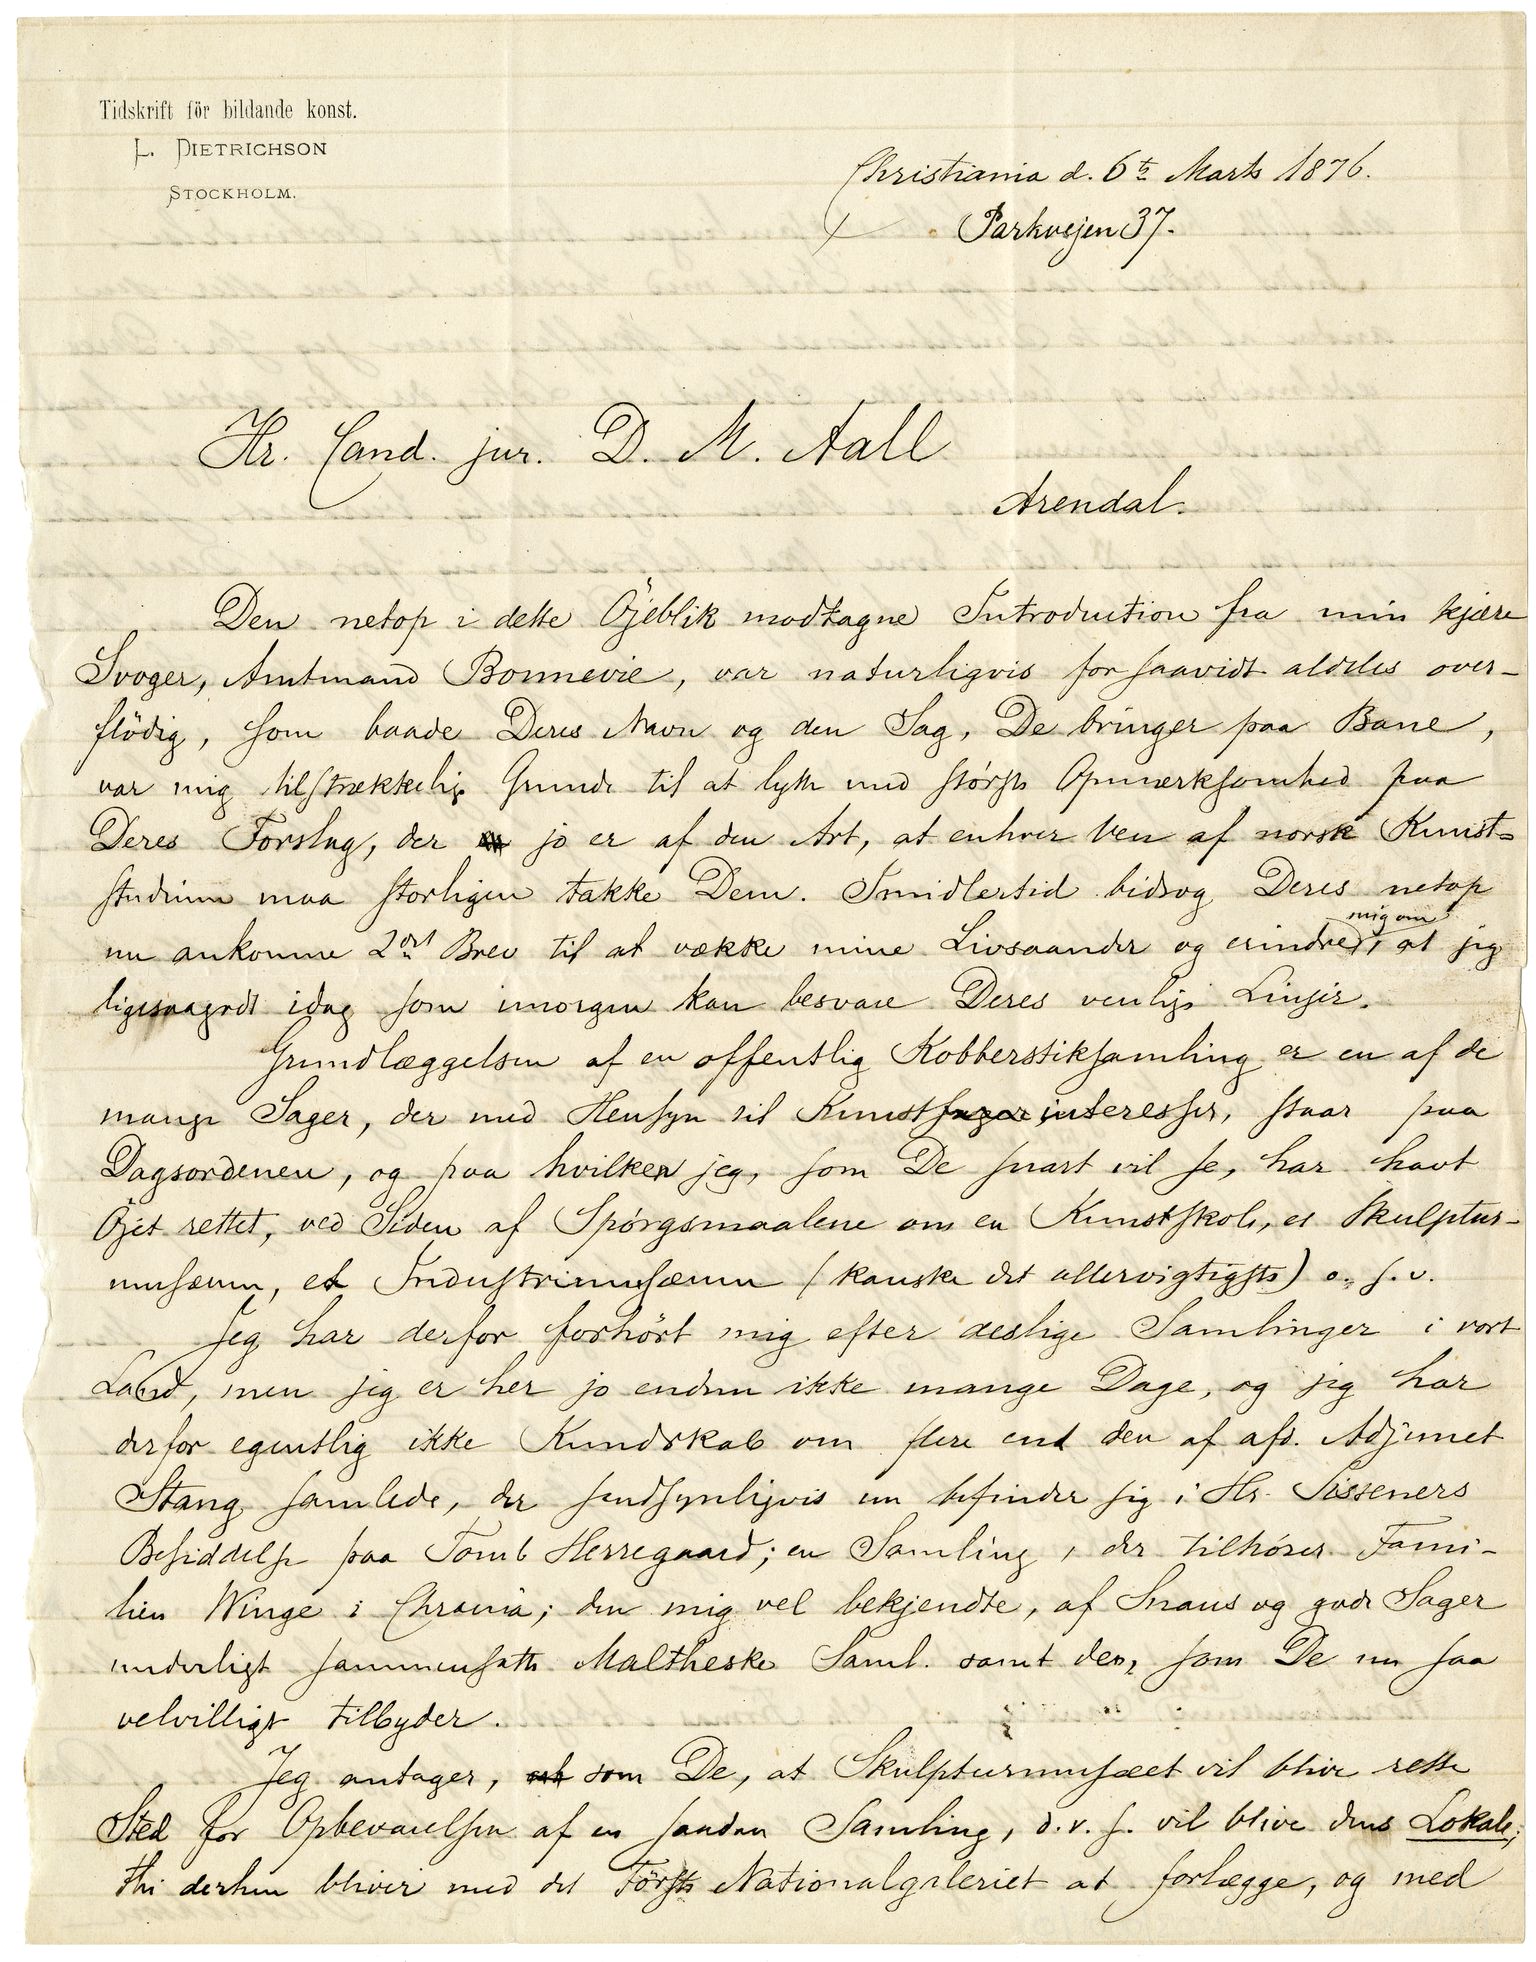 Tidskrift för bildande konst.
L. DIETRICHSON
STOCKHOLM.
Christiania d. 6te Marts 1876.
Parkvejen 37.
Hr. Cand. jur. D. M. Aall
Arendal.
Den netop i dette Öjeblik modtagne Introduction fra min kjære
Svoger, Amtmand Bonnevie, var naturligvis forsaavidt aldeles over-
flödig, som baade Deres Navn og den Sag, De bringer paa Bane,
var mig tilstrækkelige Grunde til at lytte med største Opmærksomhed paa
Deres Forslag, der jo er af den Art, at enhver Ven af norsk Kunst-
studium maa storligen takke Dem. Imidlertid bidrog Deres netop
nu ankomne 2det Brev til at vække mine Livsaander og erindred mig om, at jeg
ligesaagodt idag som imorgen kan besvare Deres venlige Linjer.
Grundlæggelsen af en offentlig Kobberstiksamling er en af de
mange Sager, der med Hensyn til Kunstinteresser, staar paa
Dagsordenen, og paa hvilken jeg, som De snart vil se, har havt
Öjet rettet, ved Siden af Spörgsmaalene om en Kunstskole, et Skulptur-
musæum, et Industrimusæum (kanske det allervigtigste) o. s. v.
Jeg har derfor forhört mig efter deslige Samlinger i vort
Land, men jeg er her jo endnu ikke mange Dage, og jeg har
derfor egentlig ikke Kundskab om flere end den af afd. Adjunct
Stang samlede, der sandsynligvis nu befinder sig i Hr. Sisseners
Besiddelse paa Tomb Herregaard; en Samling, der tilhörer Fami-
lien Winge i Chrania; den mig vel bekjendte, af Snaus og gode Sager
underligt sammensatte Maltheske Saml. samt den, som De nu saa
velvilligt tilbyder.
Jeg antager, som De, at Skulpturmusæet vil blive rette
Sted for Opbevarelsen af en saadan Samling, d. v. s. vil blive dens Lokale;
thi derhen bliver med det Förste Nationalgaleriet at forlægge, og med